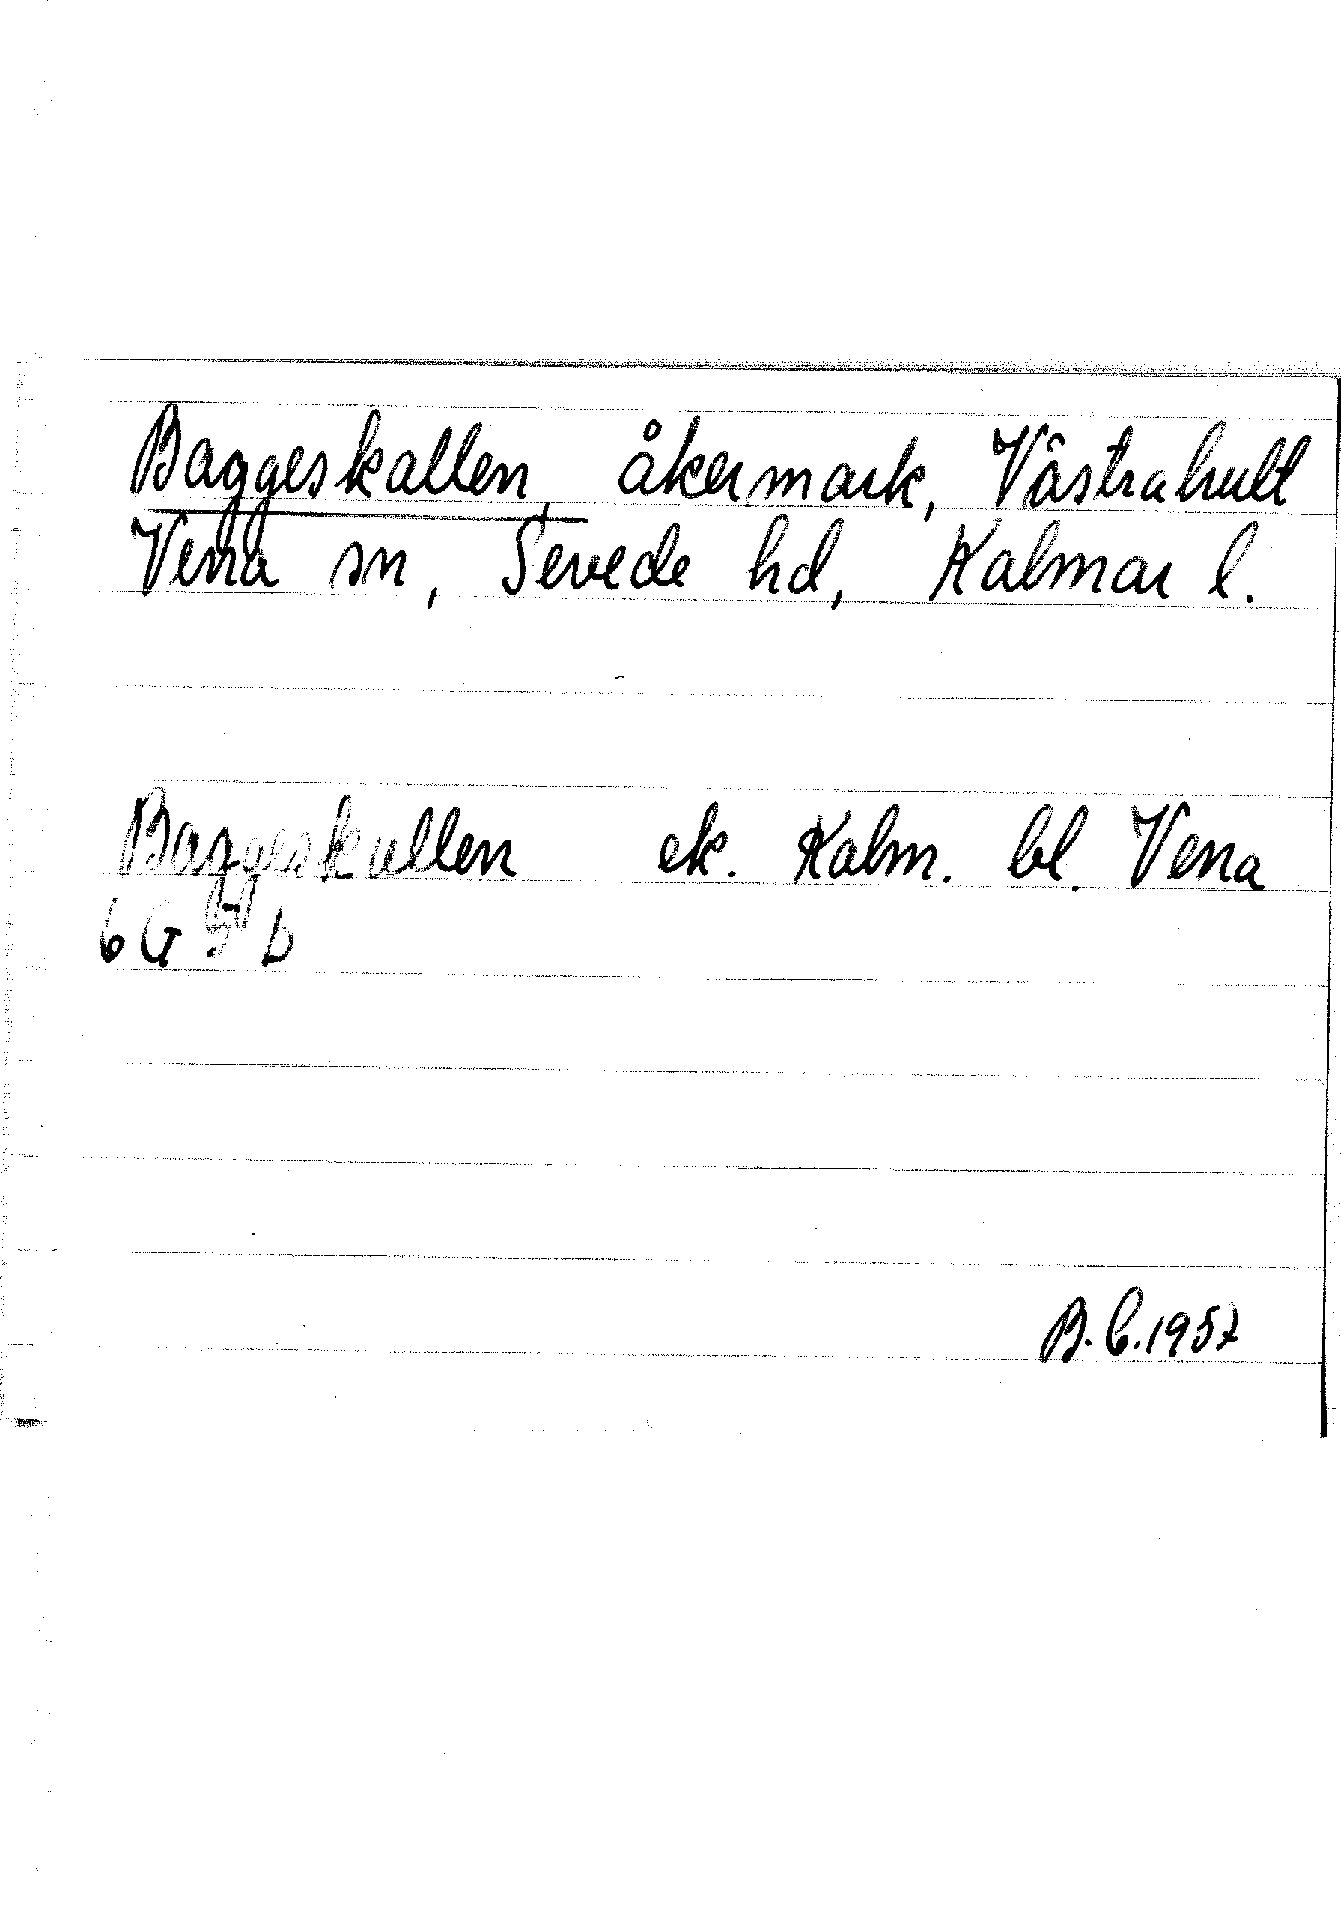 Baggeskallen, åkermark, Västrahult
Vena sn, Sevede hd, Kalmar l.
Baggeskullen ek. Kalm. bl. Vena
6 G 5 b
B.C. 1957